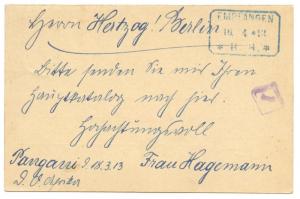 Herrn Hertzog! Berlin
EMPFANGEN
10. 4 *13
* R. H. *
Bitte senden Sie mir Ihren
Hauptkatalog nach hier.
Hochachtungsvoll
Pangani d. 18.3.13 Frau Hagemann
D. O. Afrika